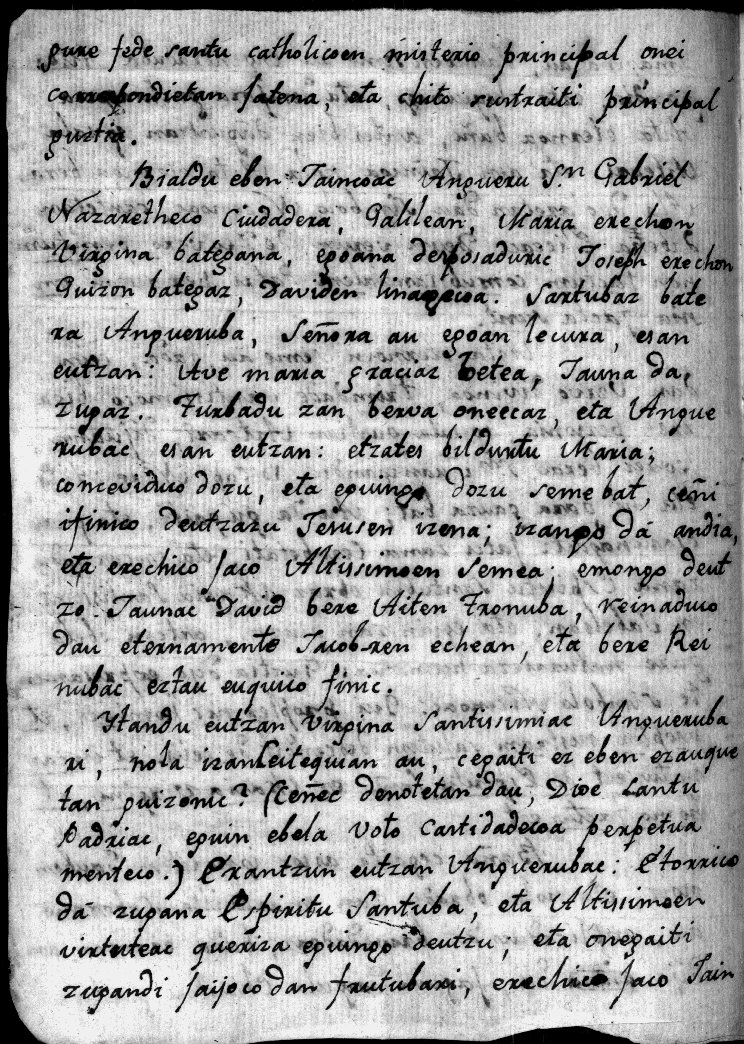 gure fede santu catholicoen misterio principal onei
correspondietan jatena, eta chito sustraiti principal
guztia.
Bialdu eben Jaincoac Angueru S.n Gabriel
Nazaretheco Ciudadera, Galilean, Maria erechon
Virgina bategana, egoana desposaduric Joseph erechon
Guizon bategaz, Daviden linagecoa. Sartubaz bate
ra Angueruba, Señora au egoan lecura, esan
eutzan: Ave maria graciaz betea, Jauna da,
zugaz. Turbadu zan berva oneecaz, eta Angue
rubac esan eutzan: etzates bildurtu Maria;
conceviduco dozu, eta eguingo dozu seme bat, ceñi
ifinico deutzazu Jesusen izena; izango dá andia,
eta erechico jaco Altissimoen Semea; emongo deut
zo Jaunac David bere Aiten tronuba, reinaduco
dau eternamente Jacob-ren echean, eta bere Rei
nubac eztau euquico finic.
Ytandu eutzan Virgina Santissimiac Angueruba
ri, nola izanleitequian au, cegaiti ez eben ezauque
tan guizonic? (Ceñec denotetan dau, Dioe Santu
Padriac, eguin ebela voto Castidadecoa perpetua
menteco.) Erantzun eutzan Anguerubac: Etorrico
dá zugana Espiritu Santuba, eta Altissimoen
virtuteac queriza eguingo deutzu, eta onegaiti
zugandi jaijoco dan frutubari, erechico jaco Jain